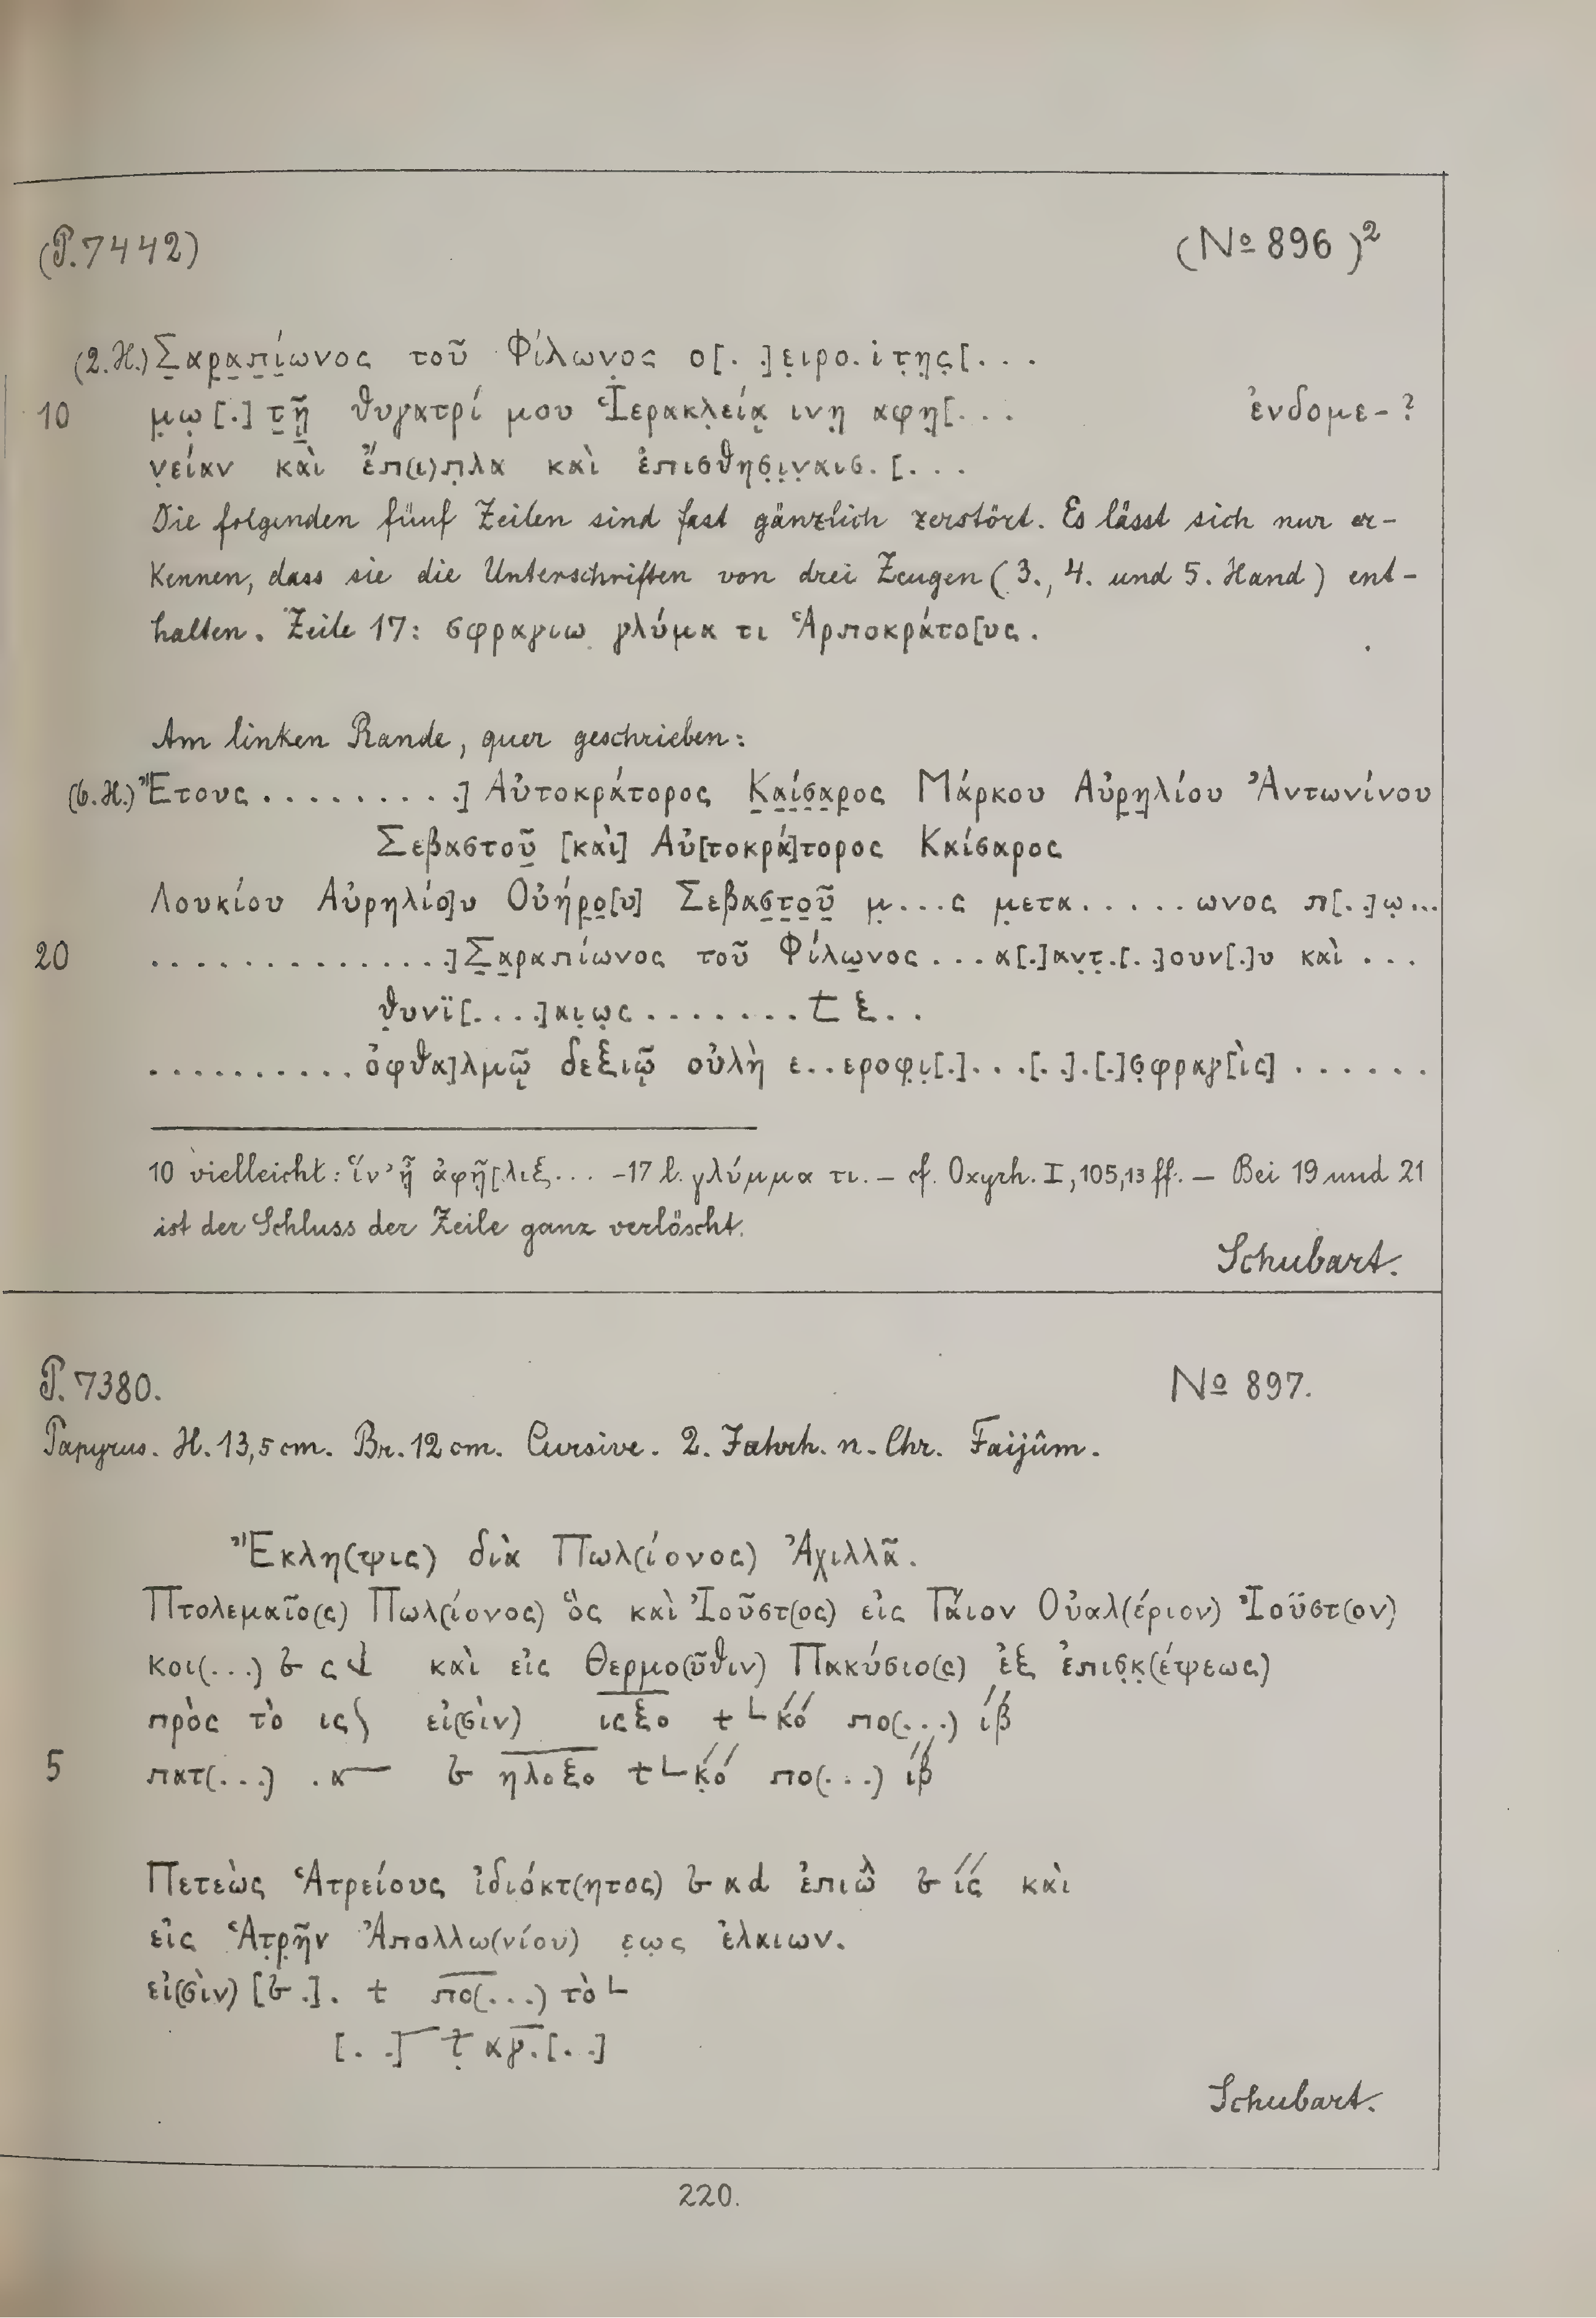 (P. 7442) (No 896)²
(2. H.) Σ̣α̣ρ̣α̣π̣ί̣ωνος τοῦ Φίλων̣ος ο[. .]ε̣ιρο. ι τ̣η̣ς̣[. . .
10 μ̣ω̣[.] τ̣ῇ̣ θυγατρί μου Ἱερακλ̣είᾳ̣ ινη̣ αφη̣[. . . ἐνδομε- ?
ν̣είαν καὶ ἔπ(ι)π̣λα καὶ ἐπισθησ̣ι̣ν̣αισ. [. . .
Die folgenden fünf Zeilen sind fast gänzlich zerstört. Es lässt sich nur er-
kennen, dass sie die Unterschriften von drei Zeugen (3., 4. und 5. Hand) ent-
halten. Zeile 17: σφραγιω γλύμα τι Ἁρποκράτο[υς.
Am linken Rande, quer geschrieben:
(6. H.) Ἔτους . . . . . . . . . .] Αὐτοκράτορος Κ̣α̣ί̣σ̣α̣ρ̣ος Μάρκου Αὐρ̣η̣λίου Ἀντωνίνου
Σεβαστοῦ̣ [καὶ] Αὐ[τοκρά]τορος Καίσαρος
Λουκίου Αὐρηλίο]υ Οὐήρ̣ο̣[υ] Σεβασ̣τ̣ο̣ῦ̣ μ̣ . . . ς μ̣ετα . . . . . ωνος π[. .]ω̣ . . .
20 . . . . . . . . . . . . . . .] Σ̣α̣ραπίωνος τοῦ Φίλω̣νος . . . α[.]αν̣τ̣.[. .]ουν[.]υ καὶ . . .
θ̣υνϊ[. . . .]αι̣ω̣ς . . . . . . . Ⲥ ξ . .
. . . . . . . . . . ὀφθα]λμῷ̣ δεξιῷ̣ οὐλὴ ε . . εροφ̣ι̣[.] . . . [. .] . [.]σ̣φραγ[ὶς] . . . . . .
10 vielleicht: ἵν’ ᾖ ἀφῆ[λιξ . . . - 17 l. γλύμμα τι. – cf. Oxyrh. I, 105, 13 ff. – Bei 19 und 21
ist der Schluss der Zeile ganz verlöscht.
Schubart.
P. 7380. No 897.
Papyrus. H. 13,5 cm. Br. 12 cm. Cursive. 2. Jahrh. n. Chr. Faijûm.
Ἔκλη(ψις) διὰ Πωλ(ίονος) Ἀχιλλᾶ.
Πτολεμαῖο(ς) Πωλ(ίονος) ὃς καὶ Ἰοῦστ(ος) εἰς Γάιον Οὐαλ(έριον) Ἰοῦστ(ον)
κοι(...) ς καὶ εἰς Θερμο(ῦθιν) Πακύσιο(ς) ἐξ ἐπισ̣κ̣(έψεως)
πρὸς τὸ ις εἰ(σὶν) ιςξο κ΄ο΄ πο(...) ι΄β΄
5 πατ(...) .α ηλοξο κ̣΄ο΄ πο(...) ι΄β΄
Πετεὼς Ἁτρείους ἰδιόκτ(ητος) αd ἐπιω ις καὶ
εἰς Ἁτ̣ρ̣ῆν Ἀπολλω(νίου) ε̣ω̣ς ἐλαιων.
εἰ(σὶν) [ .]. πο(...) τὸ
[. .] αγ.[. .]
Schubart.
220.